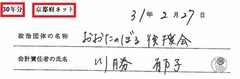 30年分 京都府ネット
31年2月27日
政治団体の名称 おおにのぼる後援会
会計責任者の氏名 川勝 郁子